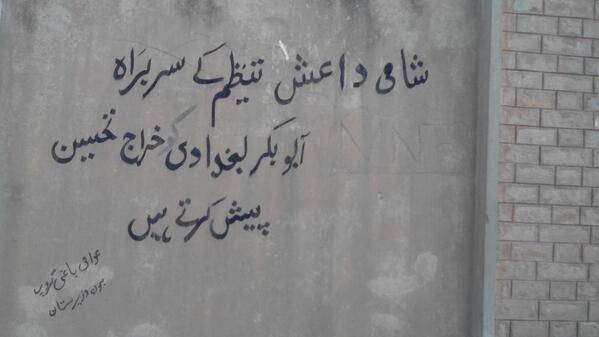 شامی داعش تنظیم کے سربراہ
ابو بکر بغدادی کو خراج تحسین
پیش کرتے ہیں
عوامی باغی گروپ
بنوں وزیرستان